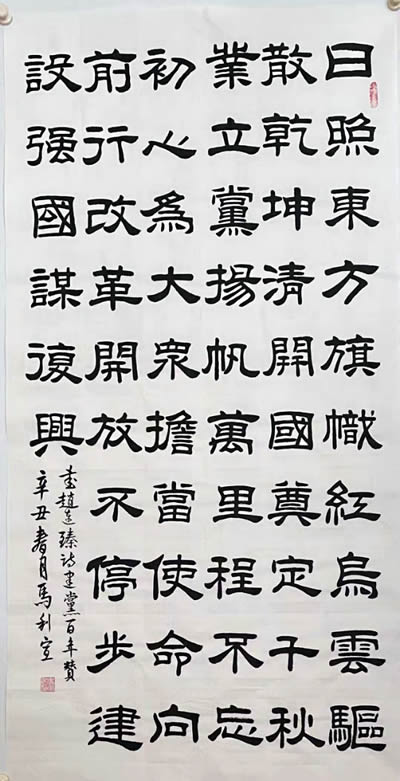 日照東方旗幟紅烏雲驅
散乾坤清開國奠定千秋
業立黨揚帆萬里程不忘
初心為大眾擔當使命向
前行改革開放不停步建
設强國謀復興
書趙臻詩建黨百年贊
辛丑春月馬利宣